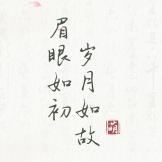 眉眼如初
岁月如故